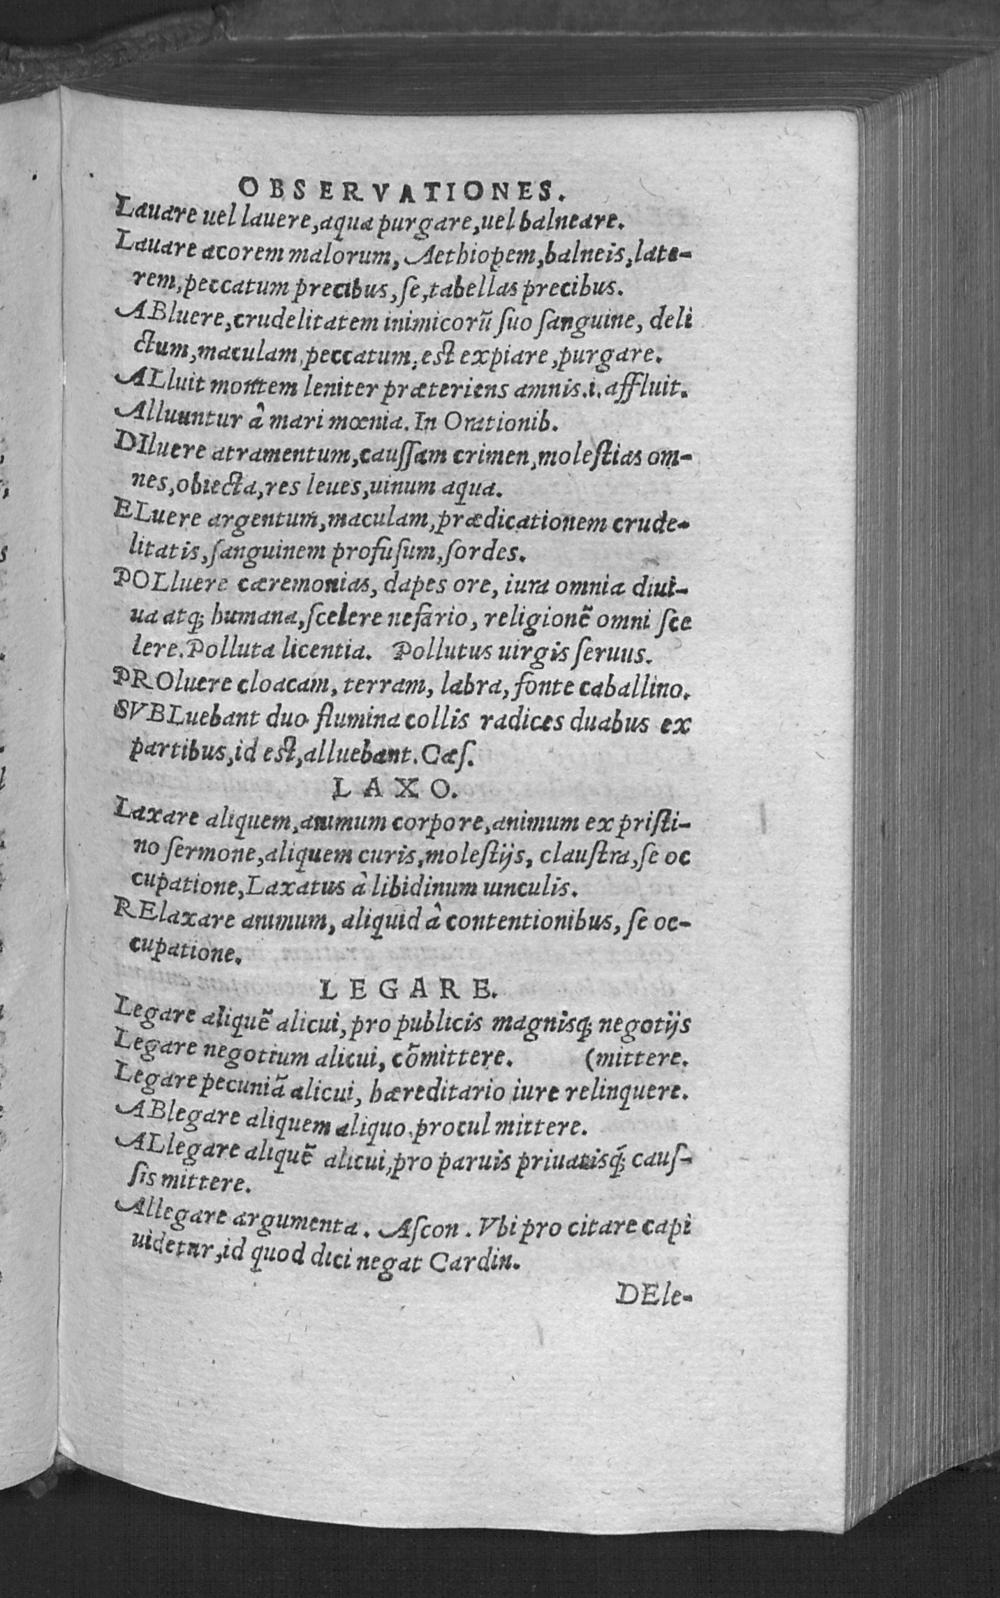 OBSERVATIONES.
Lauare uel lauere, aqua purgare, uel balneare.
Lauare acorem malorum, Aethiopem, balneis, late-
rem, peccatum precibus, se, tabellas precibus.
ABluere, crudelitatem inimicorũ suo sanguine, deli
ctum, maculam, peccatum, est expiare, purgare.
ALluit montem leniter præteriens amnis .i. affluit.
Alluuntur â mari mœnia. In Orationib.
DIluere atramentum, caussam crimen, molestias om-
nes, obiecta, res leues, uinum aqua.
ELuere argentum, maculam, prædicationem crude-
litatis, sanguinem profusum, sordes.
POLluere cæremonias, dapes ore, iura omnia diui-
ua atq; humana, scelere nefario, religionẽ omni sce
lere. Polluta licentia. Pollutus uirgis seruus.
PROluere cloacam, terram, labra, fonte caballino.
SVBLuebant duo flumina collis radices duabus ex
partibus, id est, alluebant. Cæs.
LAXO.
Laxare aliquem, animum corpore, animum ex pristi-
no sermone, aliquem curis, molestijs, claustra, se oc
cupatione, Laxatus â libidinum uinculis.
RElaxare animum, aliquid â contentionibus, se oc-
cupatione.
LEGARE.
Legare aliquẽ alicui, pro publicis magnisq; negotijs
Legare negotium alicui, cõmittere. (mittere.
Legare pecuniã alicui, hæreditario iure relinquere.
ABlegare aliquem aliquo, procul mittere.
ALlegare aliquẽ alicui, pro paruis priuatisq́; caus-
sis mittere.
Allegare argumenta. Ascon. Vbi pro citare capi
uidetur, id quod dici negat Cardin.
DEle-